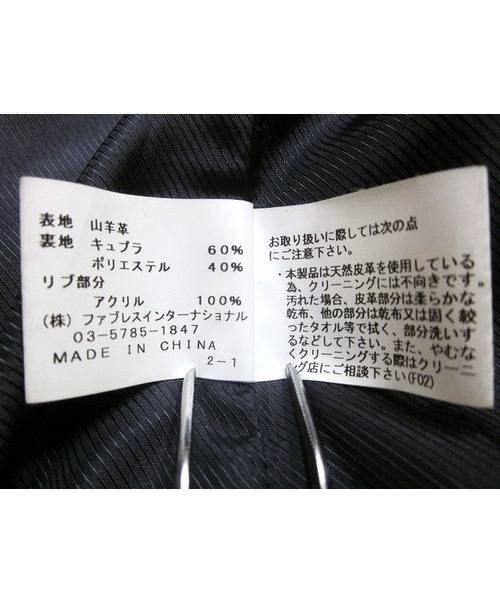 表地 山羊革
裏地 キュプラ 60%
ポリエステル 40%
リブ部分
アクリル 100%
(株) ファブレスインターナショナル
03-5785-1847
MADE IN CHINA
2-1
お取り扱いに際しては次の点
にご注意下さい。
・本製品は天然皮革を使用している
為、クリーニングには不向きです。
汚れた場合、皮革部分は柔らかな
乾布、他の部分は乾布又は固く絞
ったタオル等で拭く、部分洗いす
るなどして下さい。また、やむな
くクリーニングする際はクリーニ
ング店にご相談下さい(F02)